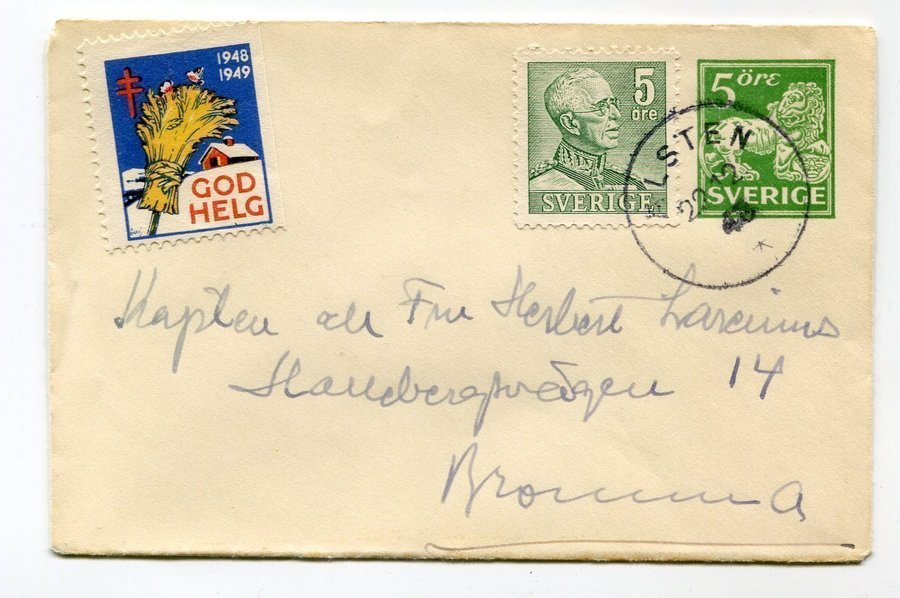 1948
1949
GOD
HELG
5
öre
SVERIGE
5 öre
SVERIGE
LSTEN
22 12
Kapten och Fru Herbert
14
Bromma